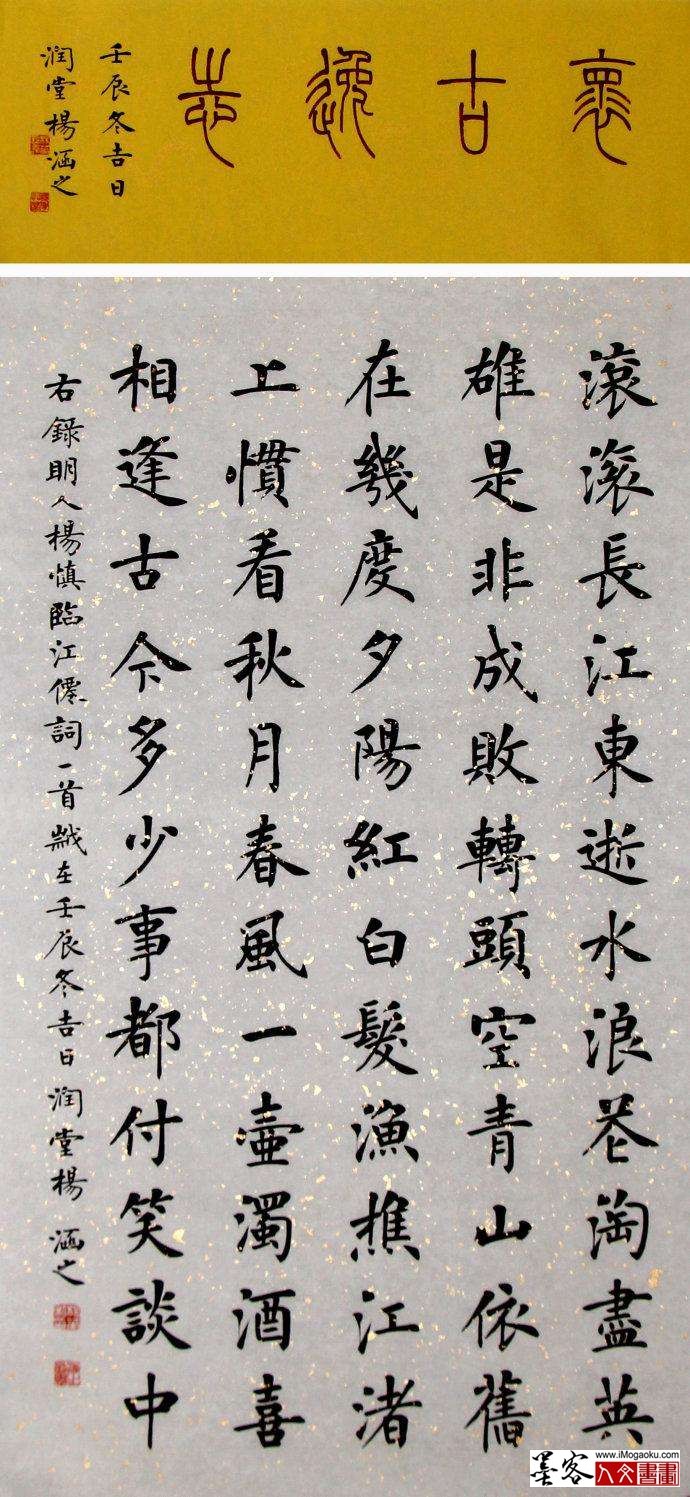 裹古逸志
壬辰冬吉日
润堂楊涵之
滾滾長江東逝水浪花淘盡英
雄是非成敗轉頭空青山依舊
在幾度夕陽紅白髮漁樵江渚
上慣看秋月春風一壺濁酒喜
相逢古今多少事都付笑談中
右錄明人楊慎臨江僊詞一首歲在壬辰冬吉日润堂楊涵之
墨客
www.iMogaoku.com
人文書畫